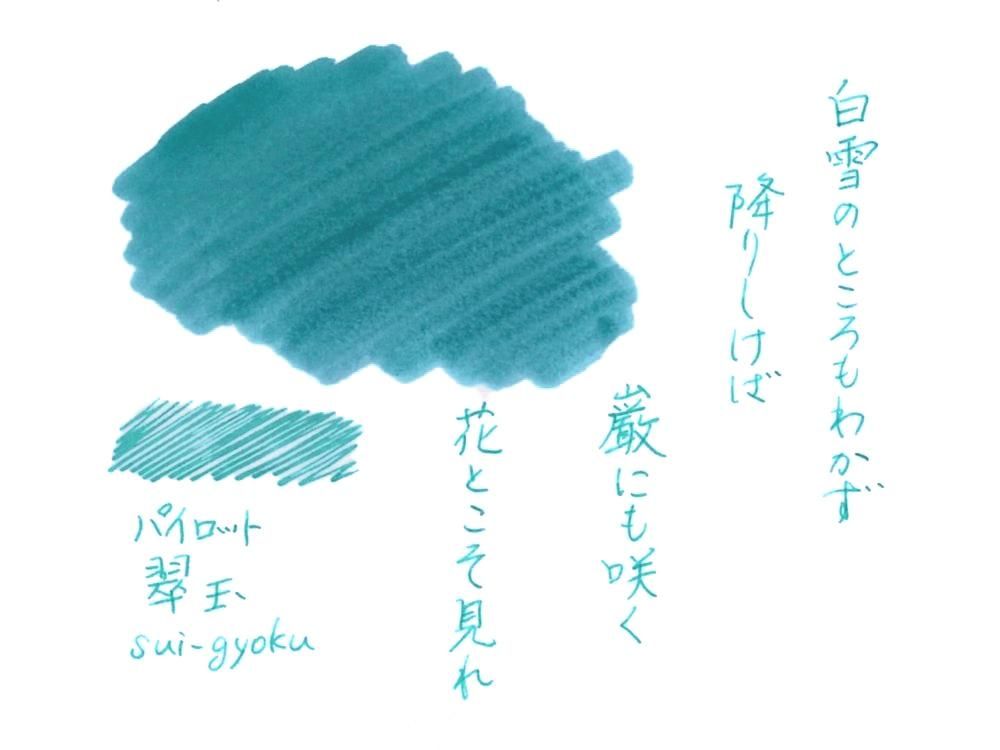 白雪のところもわかず
降りしけば
巌にも咲く
花とこそ見れ
パイロット
翠玉
sui-gyoku